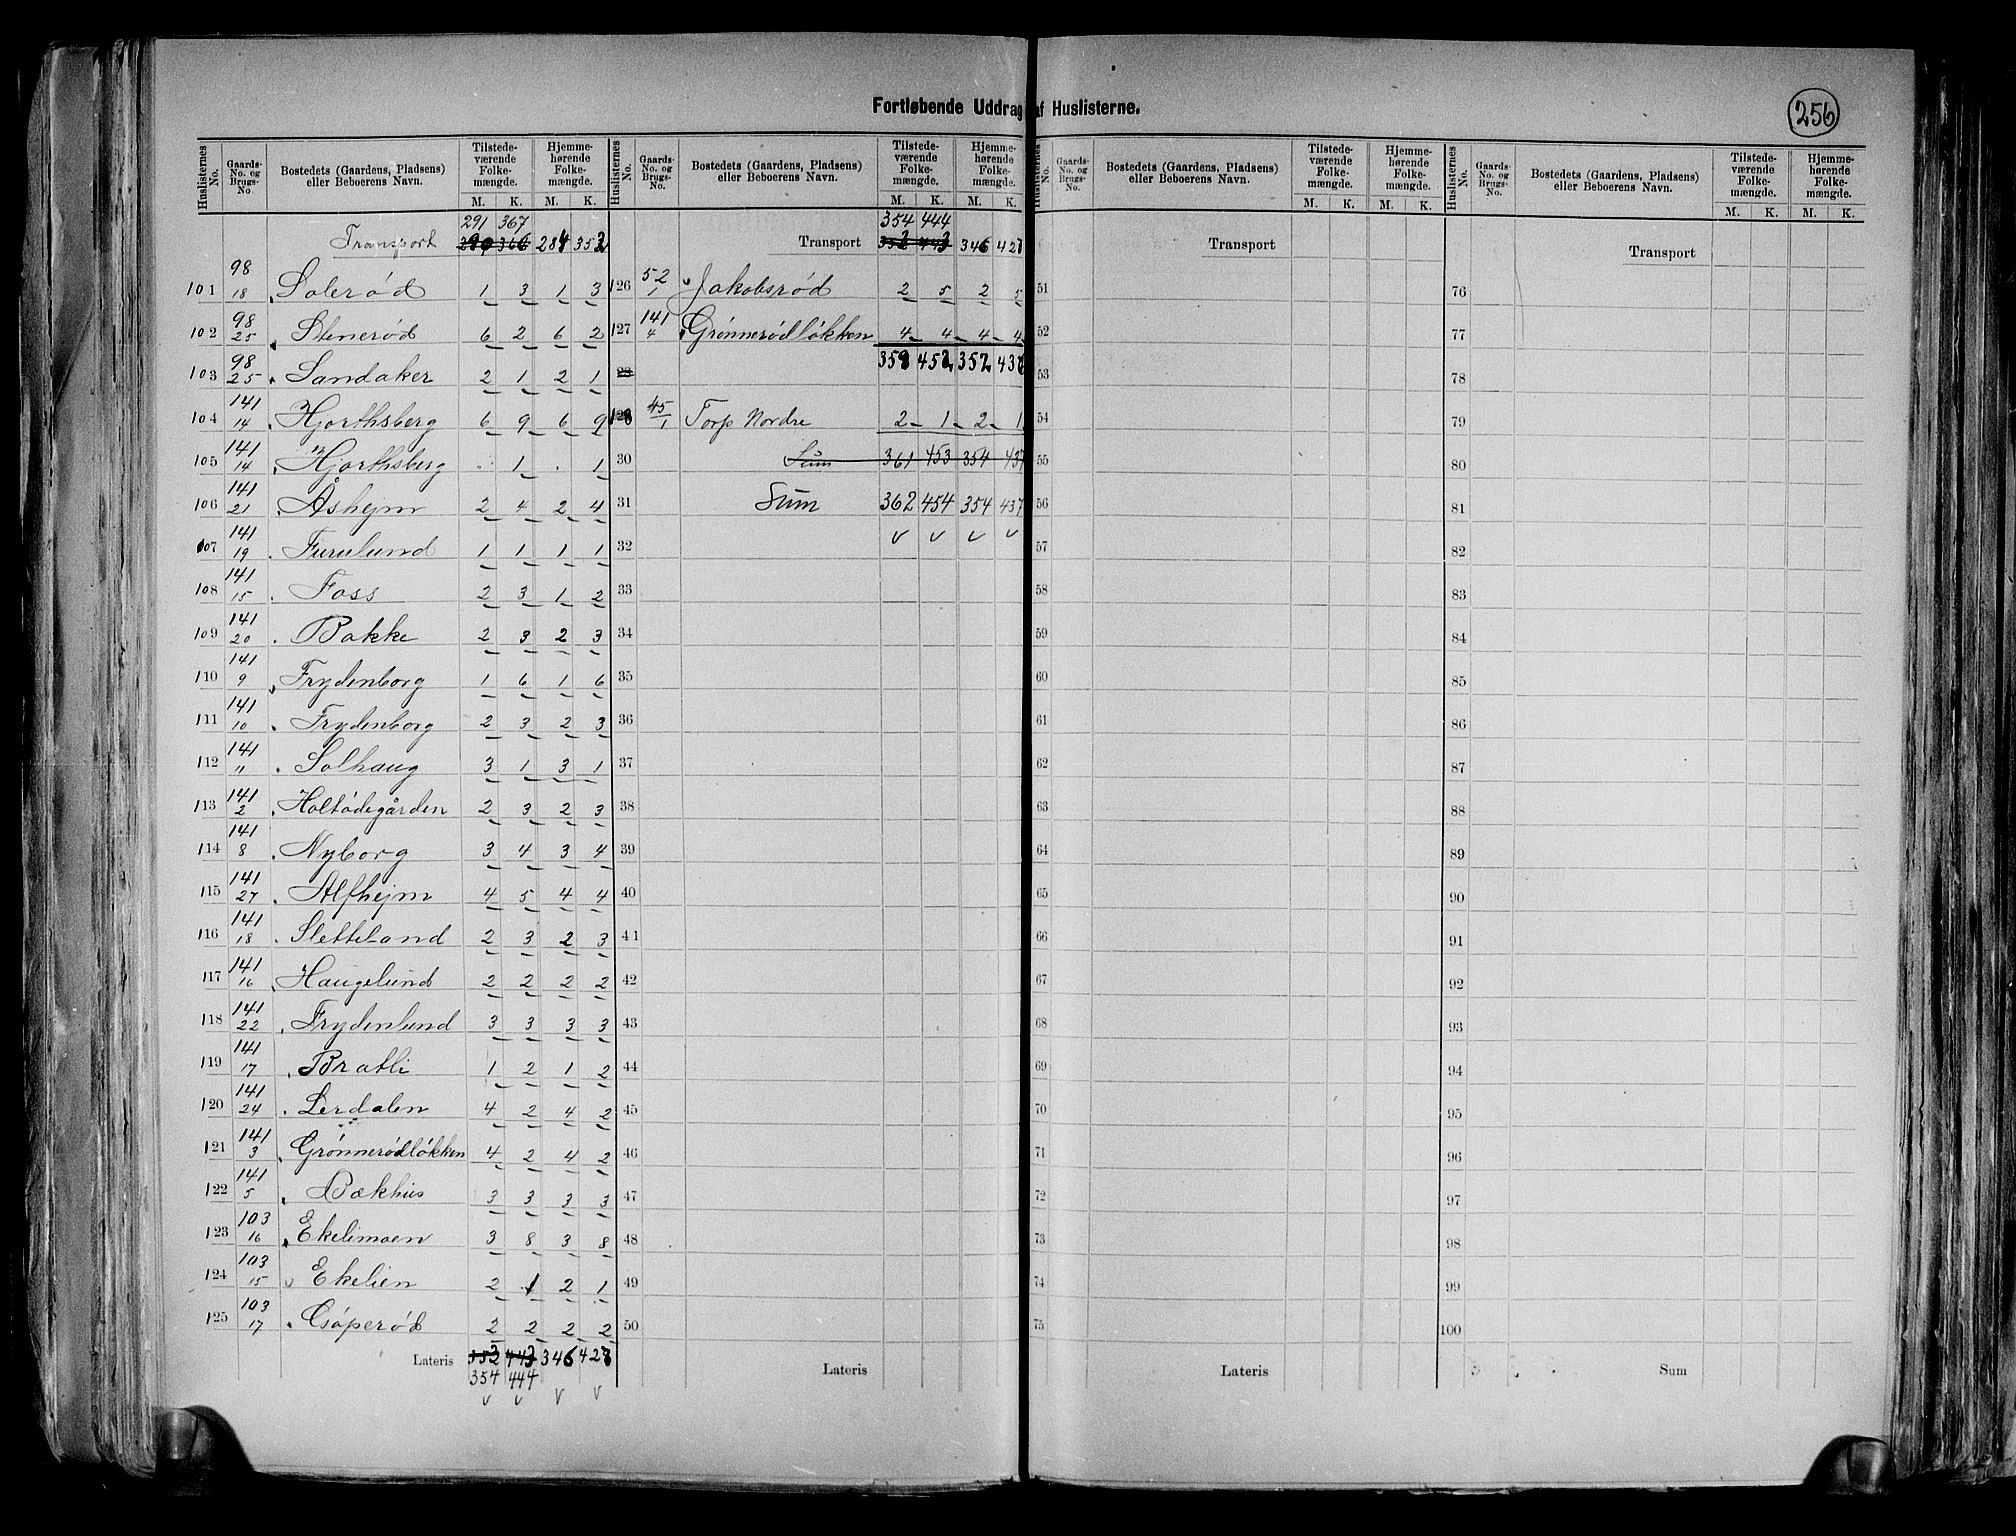 Fortløbende Uddrag af Huslisterne.
256
Huslisternes No. Gaards-No. og Brugs-No. Bostedets (Gaardens, Pladsens) eller Beboerens Navn. Tilstedeværende Folkemængde. M. K. Hjemmehørende Folkemængde. M. K.
291 367
Transport 290 366 284 352
101 98/18 Solerød 1 3 1 3
102 98/25 Stenerød 6 2 6 2
103 98/25 Sandaker 2 1 2 1
104 141/14 Hjorthsberg 6 9 6 9
105 141/14 Hjorthsberg " 1 . 1
106 141/21 Åshejm 2 4 2 4
107 141/19 Furulund 1 1 1 1
108 141/15 Foss 2 3 1 2
109 141/20 Bakke 2 3 2 3
110 141/9 Frydenborg 1 6 1 6
111 141/10 Frydenborg 2 3 2 3
112 141/11 Solhaug 3 1 3 1
113 141/2 Holtødegården 2 3 2 3
114 141/8 Nyborg 3 4 3 4
115 141/27 Alfhejm 4 5 4 4
116 141/18 Sletteland 2 3 2 3
117 141/16 Haugelund 2 2 2 2
118 141/22 Frydenlund 3 3 3 3
119 141/17 Bratli 1 2 1 2
120 141/24 Lerdalen 4 2 4 2
121 141/3 Grønnerødløkken 4 2 4 2
122 141/5 Bækhus 3 3 3 3
123 103/16 Ekelimoen 3 8 3 8
124 103/15 Ekelien 2 1 2 1
125 103/17 Csøperød 2 2 2 2
Lateris 353 443 346 428
354 444
v v v v
Huslisternes No. Gaards-No. og Brugs-No. Bostedets (Gaardens, Pladsens) eller Beboerens Navn. Tilstedeværende Folkemængde. M. K. Hjemmehørende Folkemængde. M. K.
354 444
Transport 353 443 346 427
126 52/1 Jakobsrød 2 5 2 5
127 141/4 Grønnerødløkken 4 4 4 4
28 359 452 352 437
128 45/1 Torp Nordre 2 1 2 1
30 Sum 361 453 354 437
31 Sum 362 454 354 437
32 v v v v
33
34
35
36
37
38
39
40
41
42
43
44
45
46
47
48
49
50
Lateris
Huslisternes No. Gaards-No. og Brugs-No. Bostedets (Gaardens, Pladsens) eller Beboerens Navn. Tilstedeværende Folkemængde. M. K. Hjemmehørende Folkemængde. M. K.
Transport
51
52
53
54
55
56
57
58
59
60
61
62
63
64
65
66
67
68
69
70
71
72
73
74
75
Lateris
Huslisternes No. Gaards-No. og Brugs-No. Bostedets (Gaardens, Pladsens) eller Beboerens Navn. Tilstedeværende Folkemængde. M. K. Hjemmehørende Folkemængde. M. K.
Transport
76
77
78
79
80
81
82
83
84
85
86
87
88
89
90
91
92
93
94
95
96
97
98
99
100
Sum